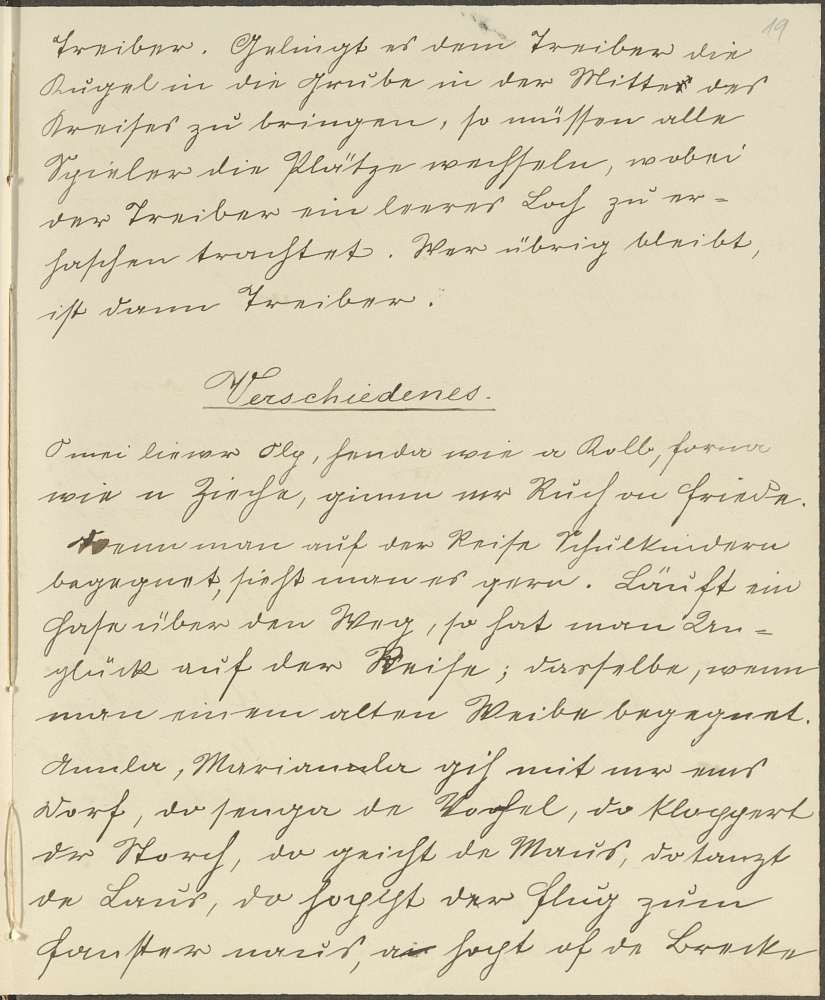 19
Treiber. Gelingt es dem Treiber die
Kugel in die Grube in der Mitte des
Kreises zu bringen, so müssen alle
Spieler die Plätze wechseln, wobei
der Treiber ein leeres Loch zu er-
haschen trachtet. Wer übrig bleibt,
ist dann Treiber.
Verschiedenes.
O mei liewr Olp, henda wie a Kolb, forna
wie n Zieche, gimm mr Ruch on Friede.
Wenn man auf der Reise Schulkindern
begegnet, sieht man es gern. Läuft ein
Hase über den Weg, so hat man Un-
glück auf der Reise; dasselbe, wenn
man einem alten Weibe begegnet.
Annla, Mariannla gih mit mr ens
Dorf, do senga de Vochel, do kloppert
dr Storch, do geicht de Maus, do tanzt
de Laus, do der Flug zum
Fanster naus, hocht of de Brecke